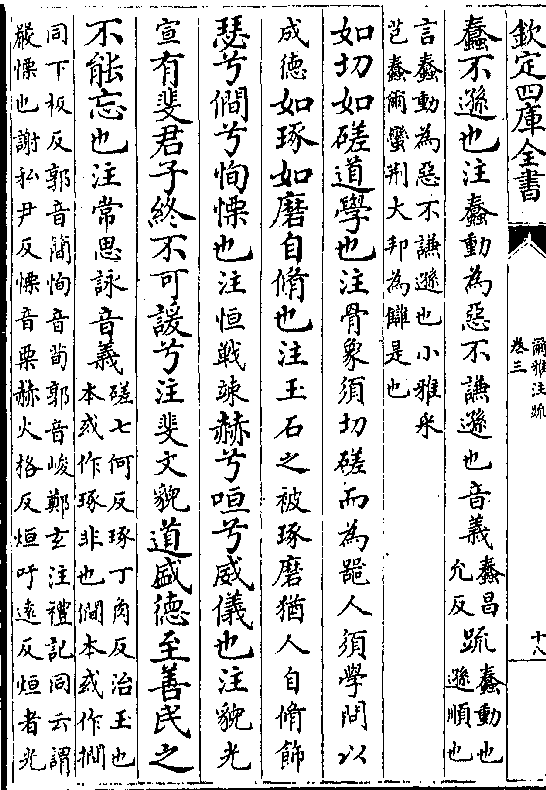 欽定四庫全書
爾雅注䟽
卷三
十八
蠢不遜也注蠢動為惡不謙遜也音義蠢昌
允反䟽蠢動也
遜順也
言蠢動為惡不謙遜也小雅采
芑蠢爾蠻荆大邦為讎是也
如切如磋道學也注骨象須切磋而為器人須學問以
成德如琢如磨自脩也注玉石之被琢磨猶人自脩飾
瑟兮僩兮恂慄也注恒戰竦赫兮咺兮威儀也注貌光
宣有斐君子終不可諼兮注斐文貌道盛德至善民之
不能忘也注常思詠音義磋七何反琢丁角反治玉也
本或作琢非也僩本或作撊
同下板反郭音簡恂音荀郭音峻鄭玄注禮記同云謂
嚴慄也謝私尹反慄音栗赫火格反烜吁逺反烜者光